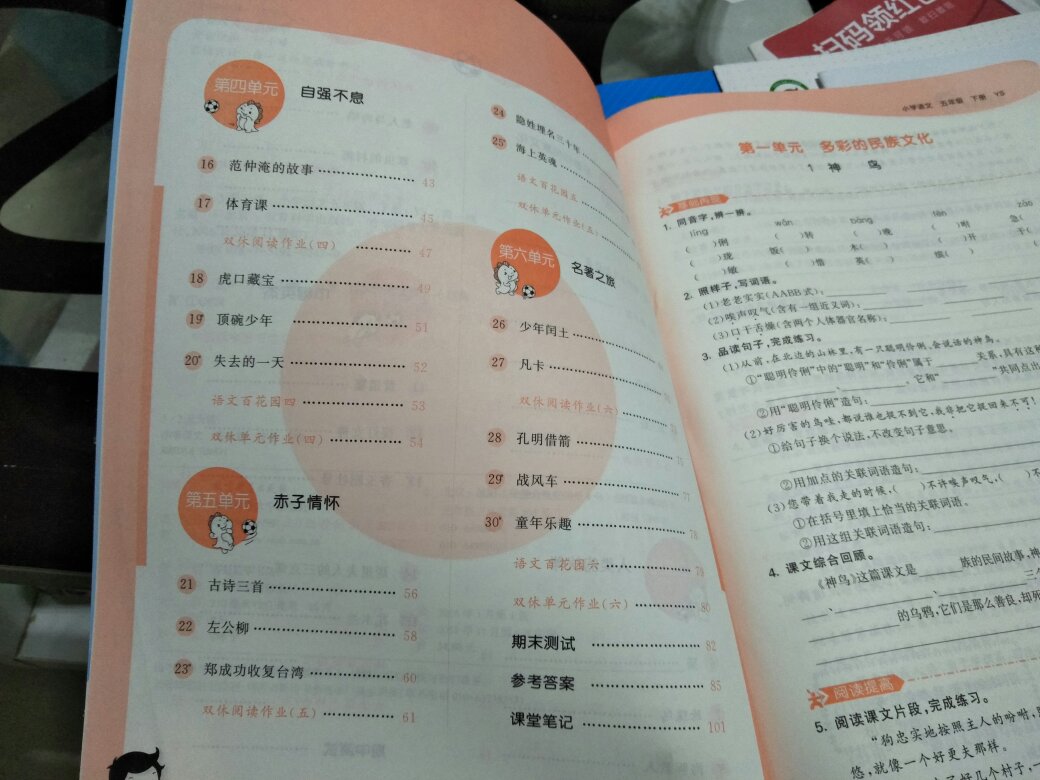 第四单元 自强不息
16 范仲淹的故事 ……………… 43
17 体育课 ……………… 45
双休阅读作业(四) ……………… 47
18 虎口藏宝 ……………… 49
19* 顶碗少年 ……………… 51
20* 失去的一天 ……………… 52
语文百花园四 ……………… 53
双休单元作业(四) ……………… 54
第五单元 赤子情怀
21 古诗三首 ……………… 56
22 左公柳 ……………… 58
23* 郑成功收复台湾 ……………… 60
双休阅读作业(五) ……………… 61
24 隐姓埋名三十年 ………
25* 海上英魂 ………
语文百花园五 ………
双休单元作业(五) ………
第六单元 名著之旅
26 少年闰土 ………
27 凡卡 ………
双休阅读作业(六) ………
28 孔明借箭 ………
29* 战风车 ……………… 77
30* 童年乐趣 ……………… 78
语文百花园六 ……………… 79
双休单元作业(六) ……………… 80
期末测试 ……………… 82
参考答案 ……………… 85
课堂笔记 ……………… 101
扫码领红
小学语文 五年级 下册 YS
第一单元 多彩的民族文化
1 神 鸟
1. 同音字,辨一辨。
líng wǎn bàng lǎn zào
( )俐 ( )转 ( )晚 ( )
( )珑 饭( ) 木( ) ( )开 干( )
( )敏 ( )惜 英( ) 缤( )
2. 照样子,写词语。
(1)老老实实(AABB式):
(2)唉声叹气(含有一组近义词):
(3)口干舌燥(含两个人体器官名称):
3. 品读句子,完成练习。
(1)从前,在北边的山林里,有一只聪明伶俐、会说话的神鸟。
①“聪明伶俐”中的“聪明”和“伶俐”属于 关系,具有这种
、 、 。它和“ ”共同点
②用“聪明伶俐”造句:
(2)好厉害的鸟哇,都说谁也捉不到它,我非把它捉回来不可!
①给句子换个说法,不改变句子意思。
②用加点的关联词语造句:
(3)您带着我走的时候,( )不许唉声叹气,( )不
①在括号里填上恰当的关联词语。
②用这组关联词语造句:
4. 课文综合回顾。
《神鸟》这篇课文是 族的民间故事,神
、 、
的乌鸦,它们是那么善良,却死
阅读提高
5. 阅读课文片段,完成练习。
“狗忠实地按照主人的吩咐,
悠,就像一个好更夫那样。
好几个村子,一